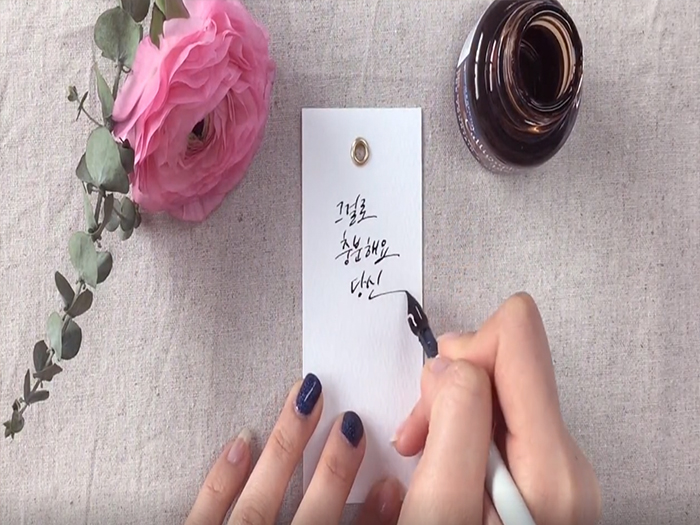 그걸로
충분해요
당신